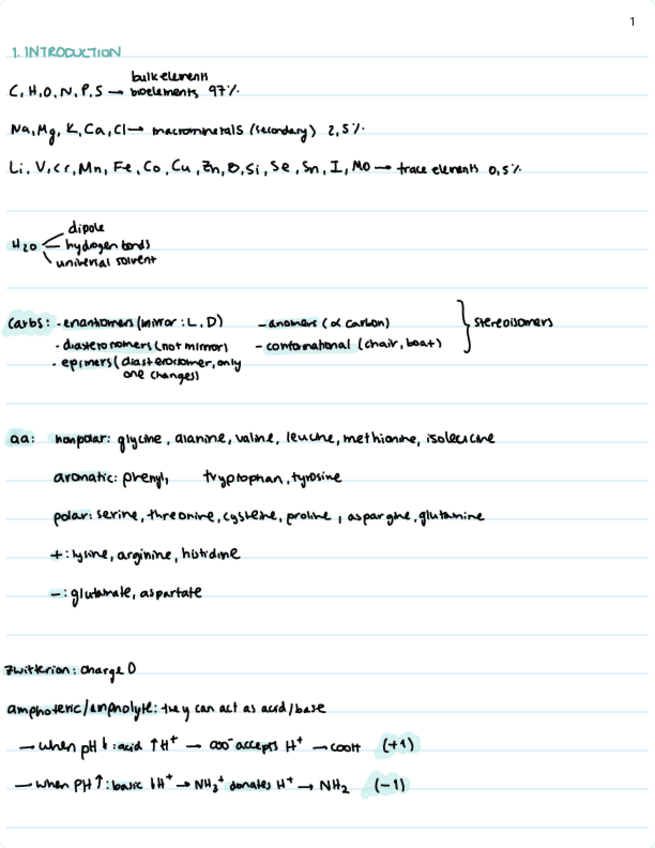 1
1. INTRODUCTION
bulk elements
C, H, O, N, P, S → bioelements 97%
Na, Mg, K, Ca, Cl → macrominerals (secondary) 2,5%
Li, V, Cr, Mn, Fe, Co, Cu, Zn, B, Si, Se, Sn, I, Mo → trace elements 0,5%
dipole
H2O hydrogen bonds
universal solvent
Carbs: - enantiomers (mirror: L, D) - anomers (α carbon) stereoisomers
- diastereromers (not mirror) - conformational (chair, boat)
- epimers (diastereoisomer, only
one changes)
aa: nonpolar: glycine, alanine, valine, leucine, methionine, isoleucine
aromatic: phenyl, tryptophan, tyrosine
polar: serine, threonine, cysteine, proline, aspargine, glutamine
+: lysine, arginine, histidine
-: glutamate, aspartate
Zwitterion: charge 0
amphoteric/ampholyte: they can act as acid/base
→ when pH ↓: acid ↑H+ → COO- accepts H+ → COOH (+1)
→ when PH ↑: basic ↓H+ → NH3+ donates H+ → NH2 (-1)